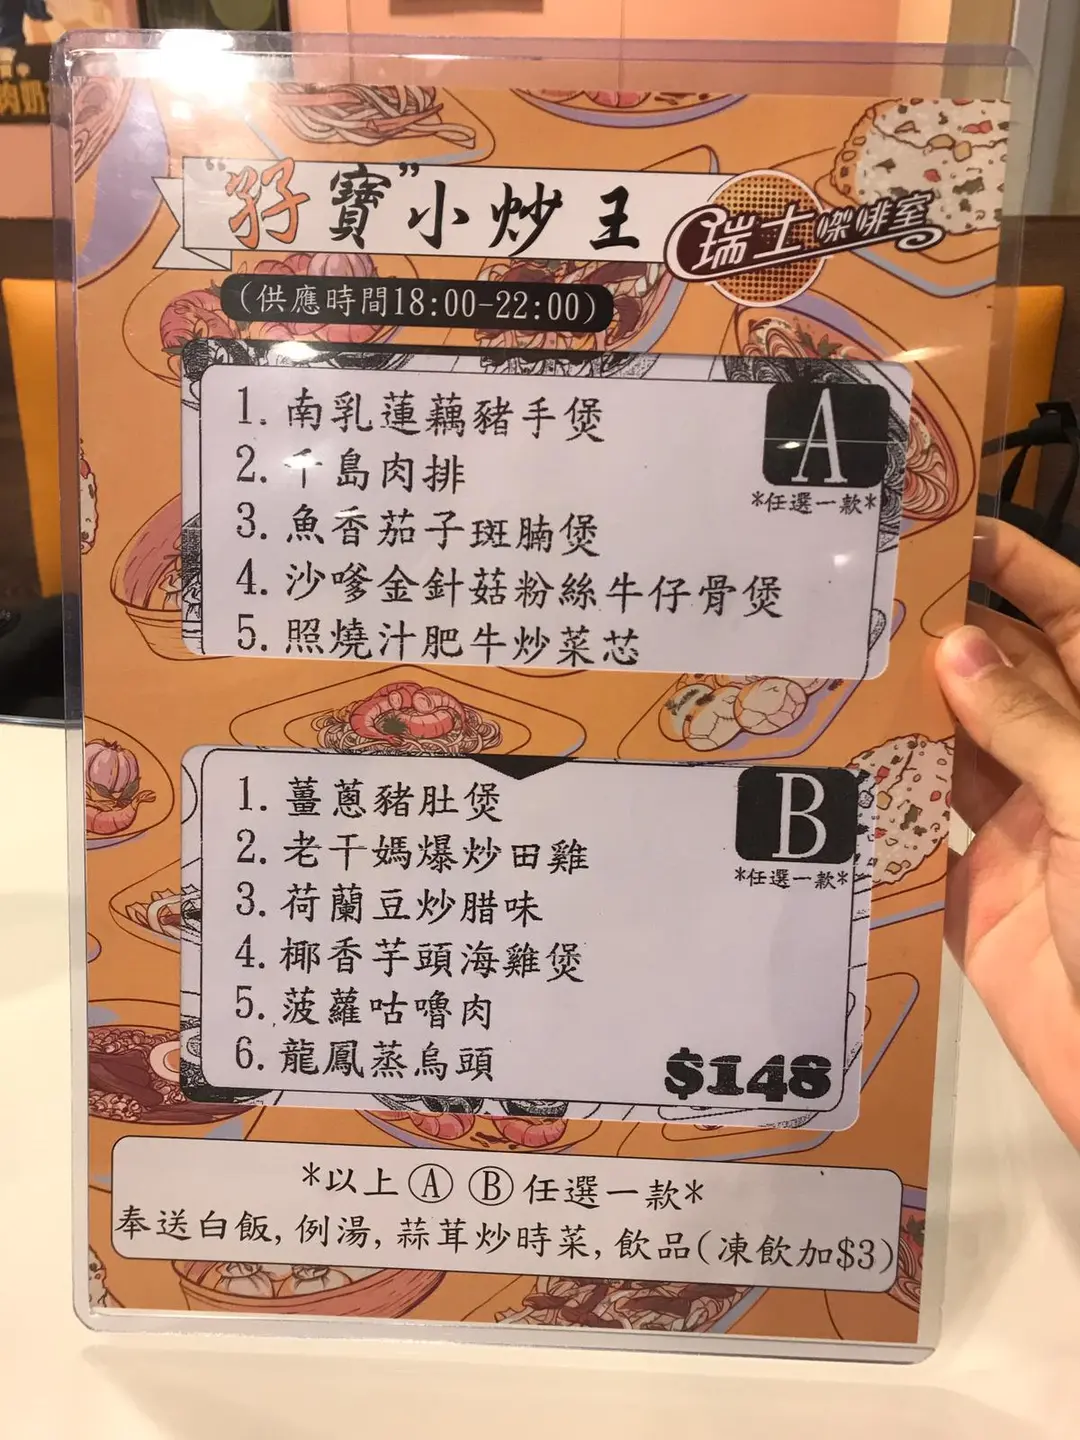 肉奶
"孖寶"小炒王
瑞士㗎啡室
(供應時間18:00-22:00)
A
*任選一款*
1. 南乳蓮藕豬手煲
2. 千島肉排
3. 魚香茄子斑腩煲
4. 沙嗲金針菇粉絲牛仔骨煲
5. 照燒汁肥牛炒菜芯
B
*任選一款*
1. 薑蔥豬肚煲
2. 老干媽爆炒田雞
3. 荷蘭豆炒腊味
4. 椰香芋頭海雞煲
5. 菠蘿咕嚕肉
6. 龍鳳蒸烏頭
$148
*以上Ⓐ Ⓑ任選一款*
奉送白飯, 例湯, 蒜茸炒時菜, 飲品(凍飲加$3)